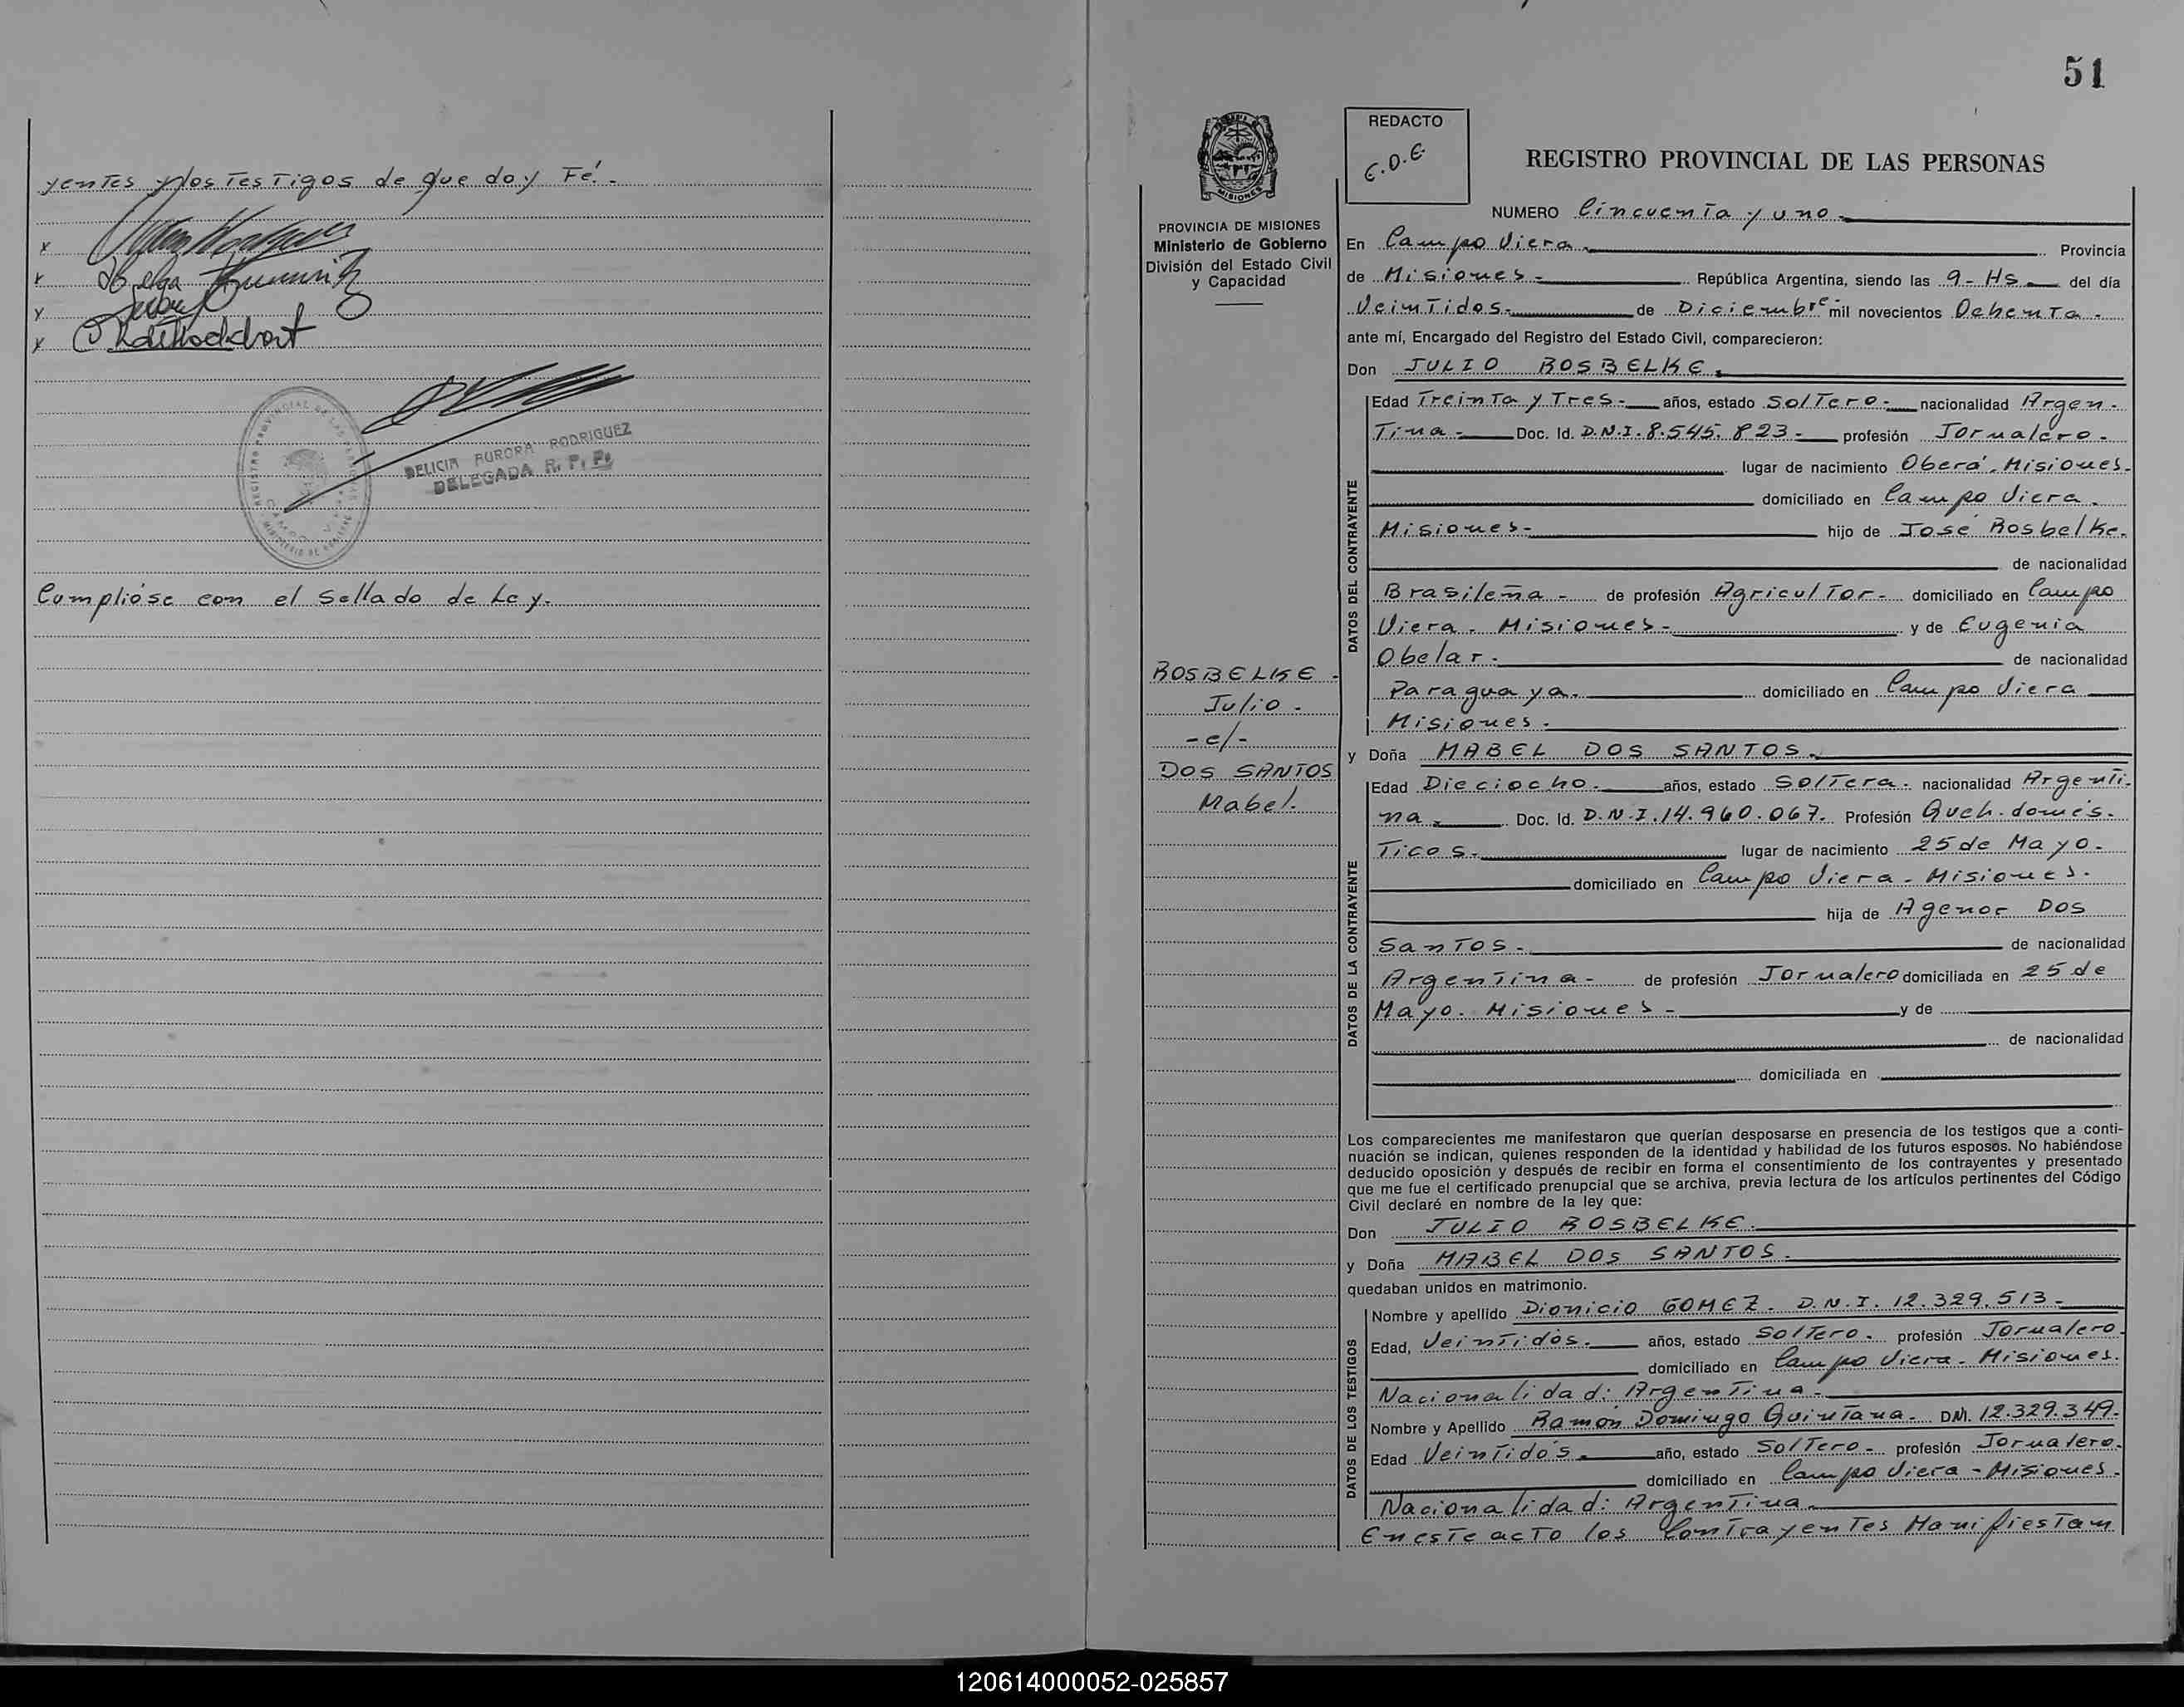 yentes y los Testigos de que doy Fé.-
x
x Helga
y
x
REGISTRO PROVINCIAL DE LAS PERSONAS
DELICIA AURORA RODRIGUEZ
DELEGADA R. P. P.
Cumplióse con el Sellado de Ley.
51
REDACTO
E.O.E.
REGISTRO PROVINCIAL DE LAS PERSONAS
MISIONES
PROVINCIA DE MISIONES
Ministerio de Gobierno
División del Estado Civil
y Capacidad
NUMERO Cincuenta y uno.-
En Campo Viera.- Provincia
de Misiones.- República Argentina, siendo las 9-Hs. del día
Veintidos.- de Diciembre- mil novecientos Ochenta.-
ante mí, Encargado del Registro del Estado Civil, comparecieron:
Don JULIO ROSBELKE.
DATOS DEL CONTRAYENTE
Edad Treinta y Tres.- años, estado Soltero.- nacionalidad Argen-
Tina.- Doc. Id. D.N.I.8.545.823.- profesión Jornalero.-
lugar de nacimiento Oberá.Misiones.-
domiciliado en Campo Viera.
Misiones.- hijo de José Rosbelke.
de nacionalidad
Brasileña.- de profesión Agricultor.- domiciliado en Campo
Viera. Misiones.- y de Eugenia
Obelar.- de nacionalidad
Paraguaya.- domiciliado en Campo Viera
Misiones.-
ROSBELKE.-
Julio.-
-c/-
DOS SANTOS
Mabel.
y Doña MABEL DOS SANTOS.-
DATOS DE LA CONTRAYENTE
Edad Dieciocho.- años, estado Soltera.- nacionalidad Argenti-
na.- Doc. Id. D.N.I.14.960.067.- Profesión Queh.domés-
Ticos.- lugar de nacimiento 25 de Mayo.-
domiciliado en Campo Viera.- Misiones.
hija de Agenor DOS
Santos.- de nacionalidad
Argentina- de profesión Jornalero domiciliada en 25 de
Mayo. Misiones.- y de
de nacionalidad
domiciliada en
Los comparecientes me manifestaron que querían desposarse en presencia de los testigos que a conti-
nuación se indican, quienes responden de la identidad y habilidad de los futuros esposos. No habiéndose
deducido oposición y después de recibir en forma el consentimiento de los contrayentes y presentado
que me fue el certificado prenupcial que se archiva, previa lectura de los artículos pertinentes del Código
Civil declaré en nombre de la ley que:
Don JULIO ROSBELKE.
y Doña MABEL DOS SANTOS.-
quedaban unidos en matrimonio.
DATOS DE LOS TESTIGOS
Nombre y apellido Dionicio GOMEZ. D.N.I. 12.329.513.-
Edad, Veintidós.- años, estado Soltero.- profesión Jornalero
domiciliado en Campo Viera.- Misiones.
Nacionalidad: Argentina.-
Nombre y Apellido Ramón Domingo Quintana.- DNI. 12.329.349.-
Edad Veintidós.- año, estado Soltero.- profesión Jornalero.-
domiciliado en Campo Viera.-Misiones.-
Nacionalidad: Argentina.-
En este acto los Contrayentes Manifiestan
120614000052-025857